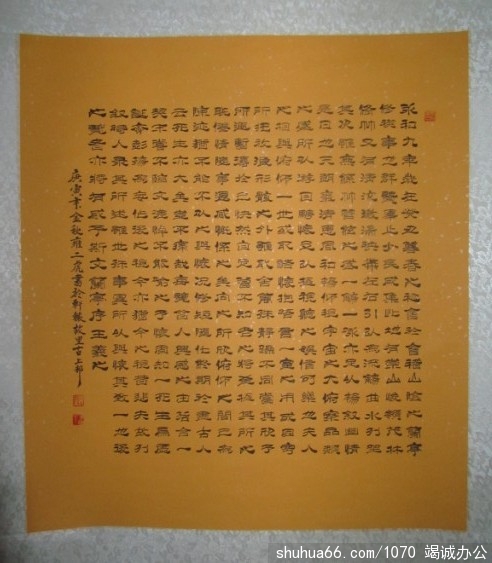 永和九年歲在癸丑暮春之初會於會稽山陰之蘭亭
修禊事也群賢畢至少長咸集此地有崇山峻領茂林
修竹又有清流激湍映帶左右引以為流觴曲水列坐
其次雖無絲竹管弦之盛一觴一詠亦足以暢敘幽情
是日也天朗氣清惠風和暢仰觀宇宙之大俯察品類
之盛所以遊目騁懷足以極視聽之娛信可樂也夫人
之相與俯仰一世或取諸懷抱悟言一室之內或因寄
所託放浪形骸之外雖取舍萬殊靜躁不同當其欣於
所遇暫得於己快然自足不知老之將至及其所之
既倦情隨事遷感慨係之矣向之所欣俯仰之間已為
陳跡猶不能不以之興懷況修短隨化終期於盡古人
云死生亦大矣豈不痛哉每覽昔人興感之由若合一
契未嘗不臨文嗟悼不能喻之於懷固知一死生為虛
誕齊彭殤為妄作後之視今亦猶今之視昔悲夫故列
敘時人錄其所述雖世殊事異所以興懷其致一也後
之覽者亦將有感於斯文蘭亭序王羲之
庚寅年金秋雍工虎書於軒轅故里古上邽
shuhua66.com/1070 竭诚办公